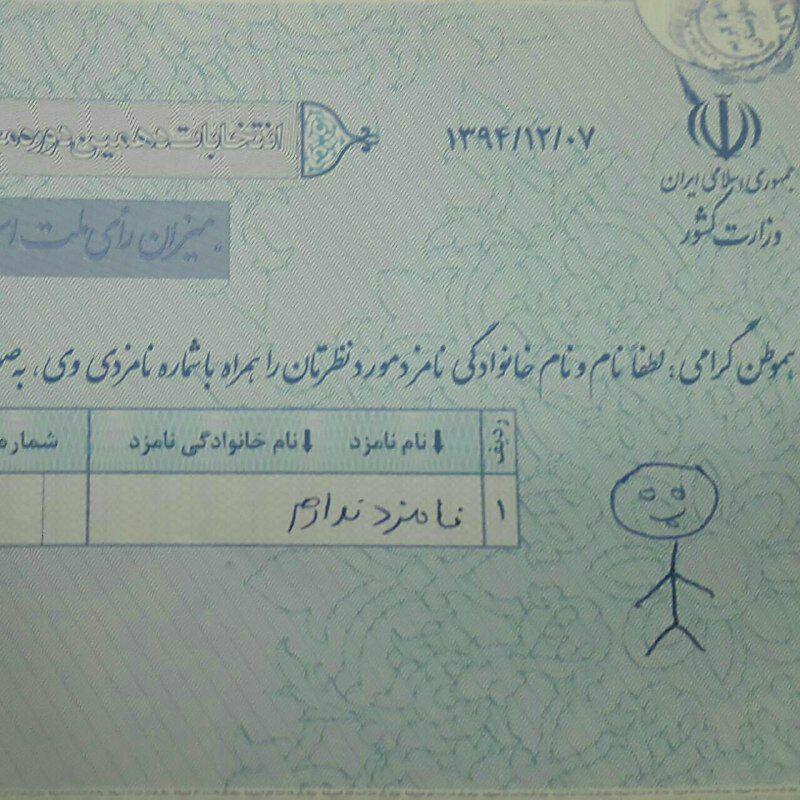 جمهوری اسلامی ایران
وزارت کشور
۱۳۹۴/۱۲/۰۷
انتخابات دهمین دوره
میزان رأی ملت
هموطن گرامی: لطفاً نام و نام خانوادگی نامزد مورد نظرتان را همراه با شماره نامزدی وی، به
ردیف ⬇نام نامزد ⬇نام خانوادگی نامزد شماره
۱ نامزد ندارم